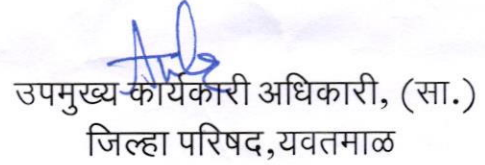 उपमुख्य कार्यकारी अधिकारी, (सा.)
जिल्हा परिषद,यवतमाळ